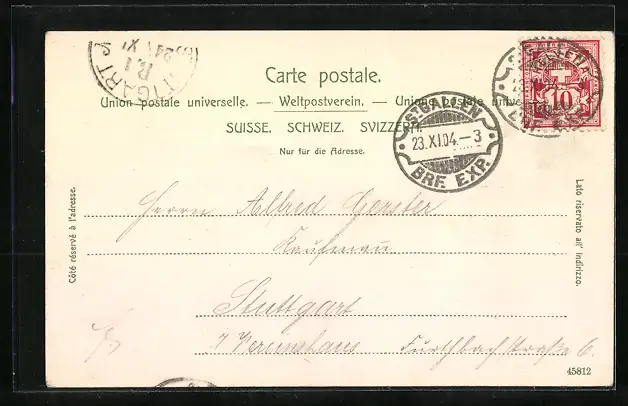 Carte postale.
Union postale universelle. — Weltpostverein. — Unione postale universale
SUISSE. SCHWEIZ. SVIZZERA.
Nur für die Adresse.
Côté réservé à l'adresse.
Lato riservato all' indirizzo.
STUTTGART
R.1
24 XI
HELVETIA
10
ST. GALLEN
23.XI.04.–3
BRF. EXP.
Herrn Alfred Gerster
Kaufmann
Stuttgart
Vereinshaus Furthbachstraße 6.
45812